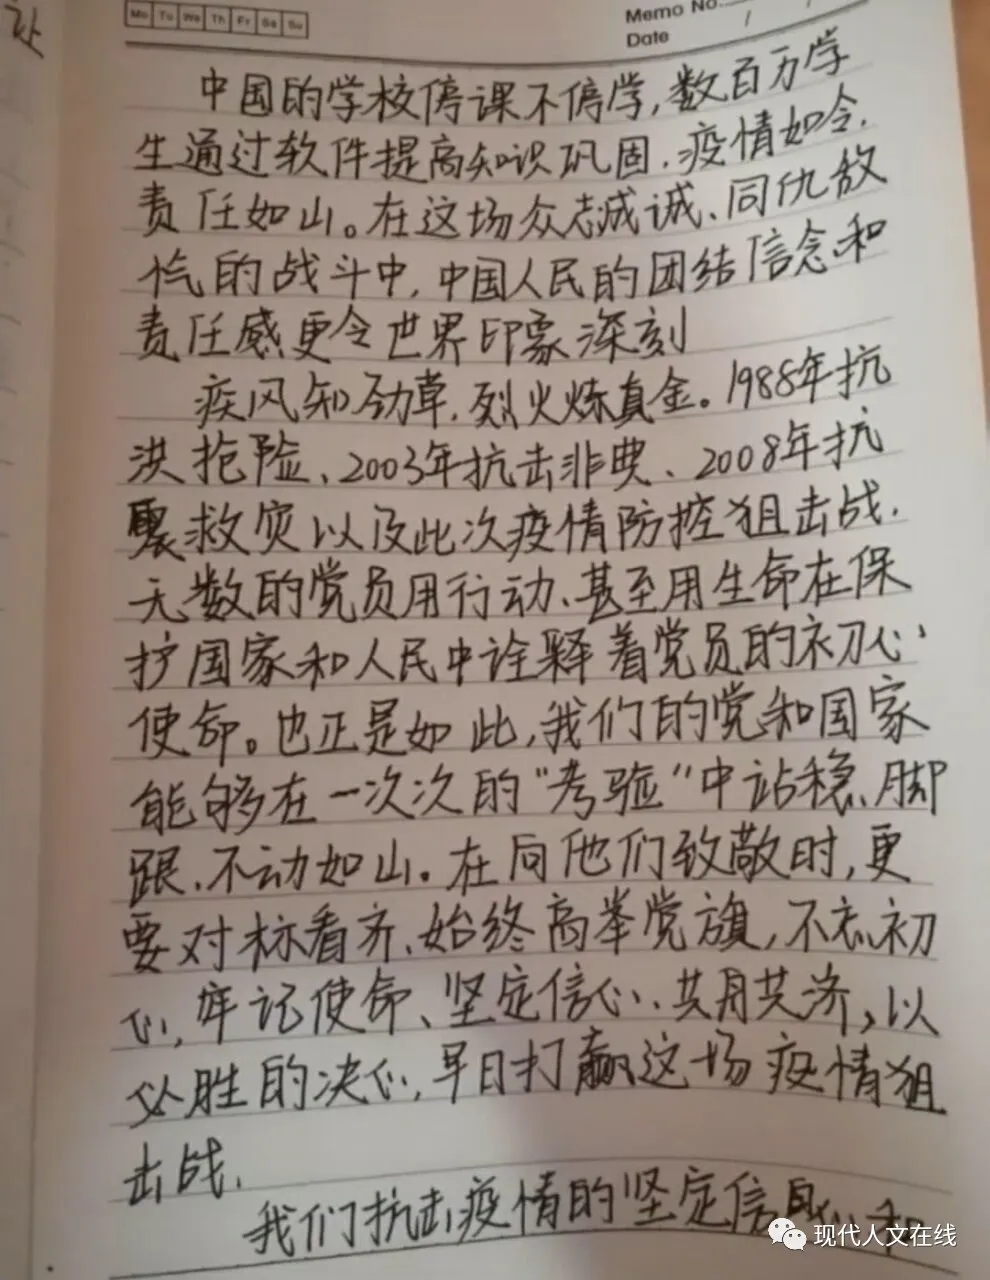 让
Mo Tu We Th Fr Sa Su
Memo No.
Date / /
中国的学校停课不停学,数百万学
生通过软件提高知识巩固.疫情如令.
责任如山。在这场众志成诚、同仇敌
忾的战斗中,中国人民的团结信念和
责任感更令世界印象深刻
疾风知劲草.烈火炼真金。1988年抗
洪抢险、2003年抗击非典、2008年抗
震救灾以及此次疫情防控狙击战.
无数的党员用行动、甚至用生命在保
护国家和人民中诠释着党员的初心、
使命。也正是如此,我们的党和国家
能够在一次次的“考验”中站稳、脚
跟.不动如山。在向他们致敬时,更
要对标看齐、始终高举党旗,不忘初
心,牢记使命、坚定信心、共月共济,以
必胜的决心,早日打赢这场疫情狙
击战.
我们抗击疫情的坚定信心和
现代人文在线